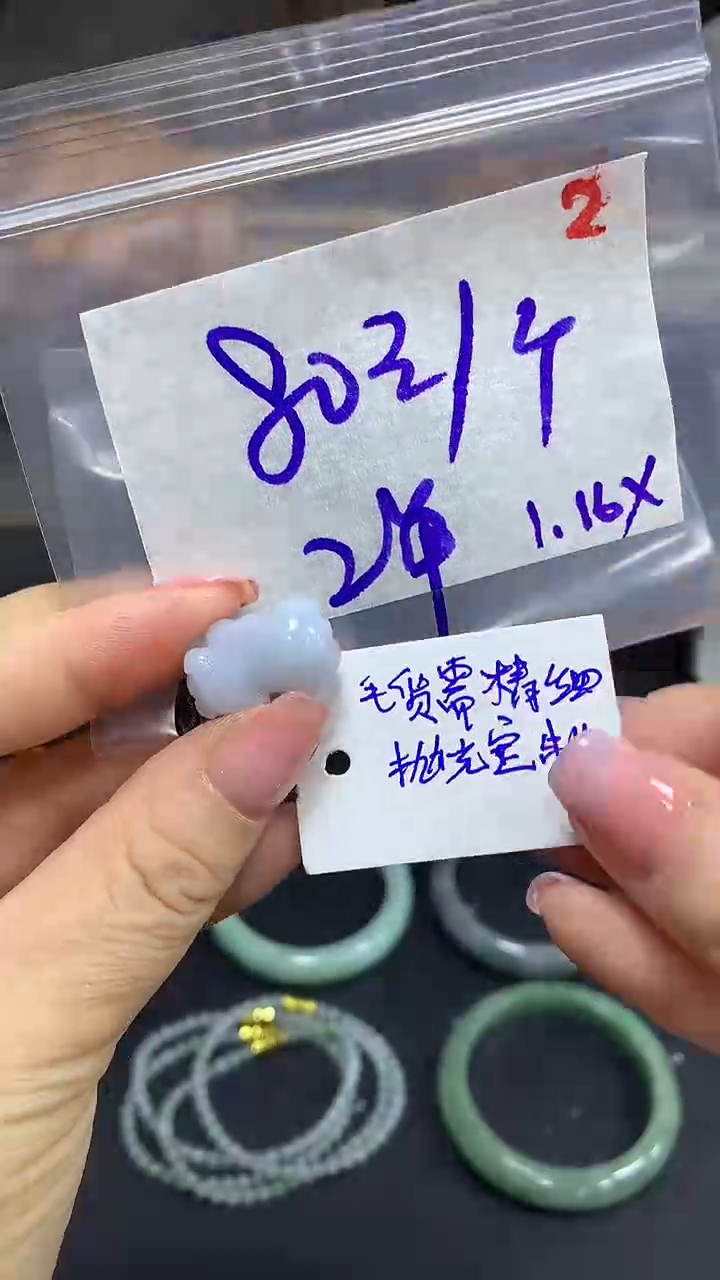 2
80元/个
2件
1.16X
毛货需精细
抛光定制